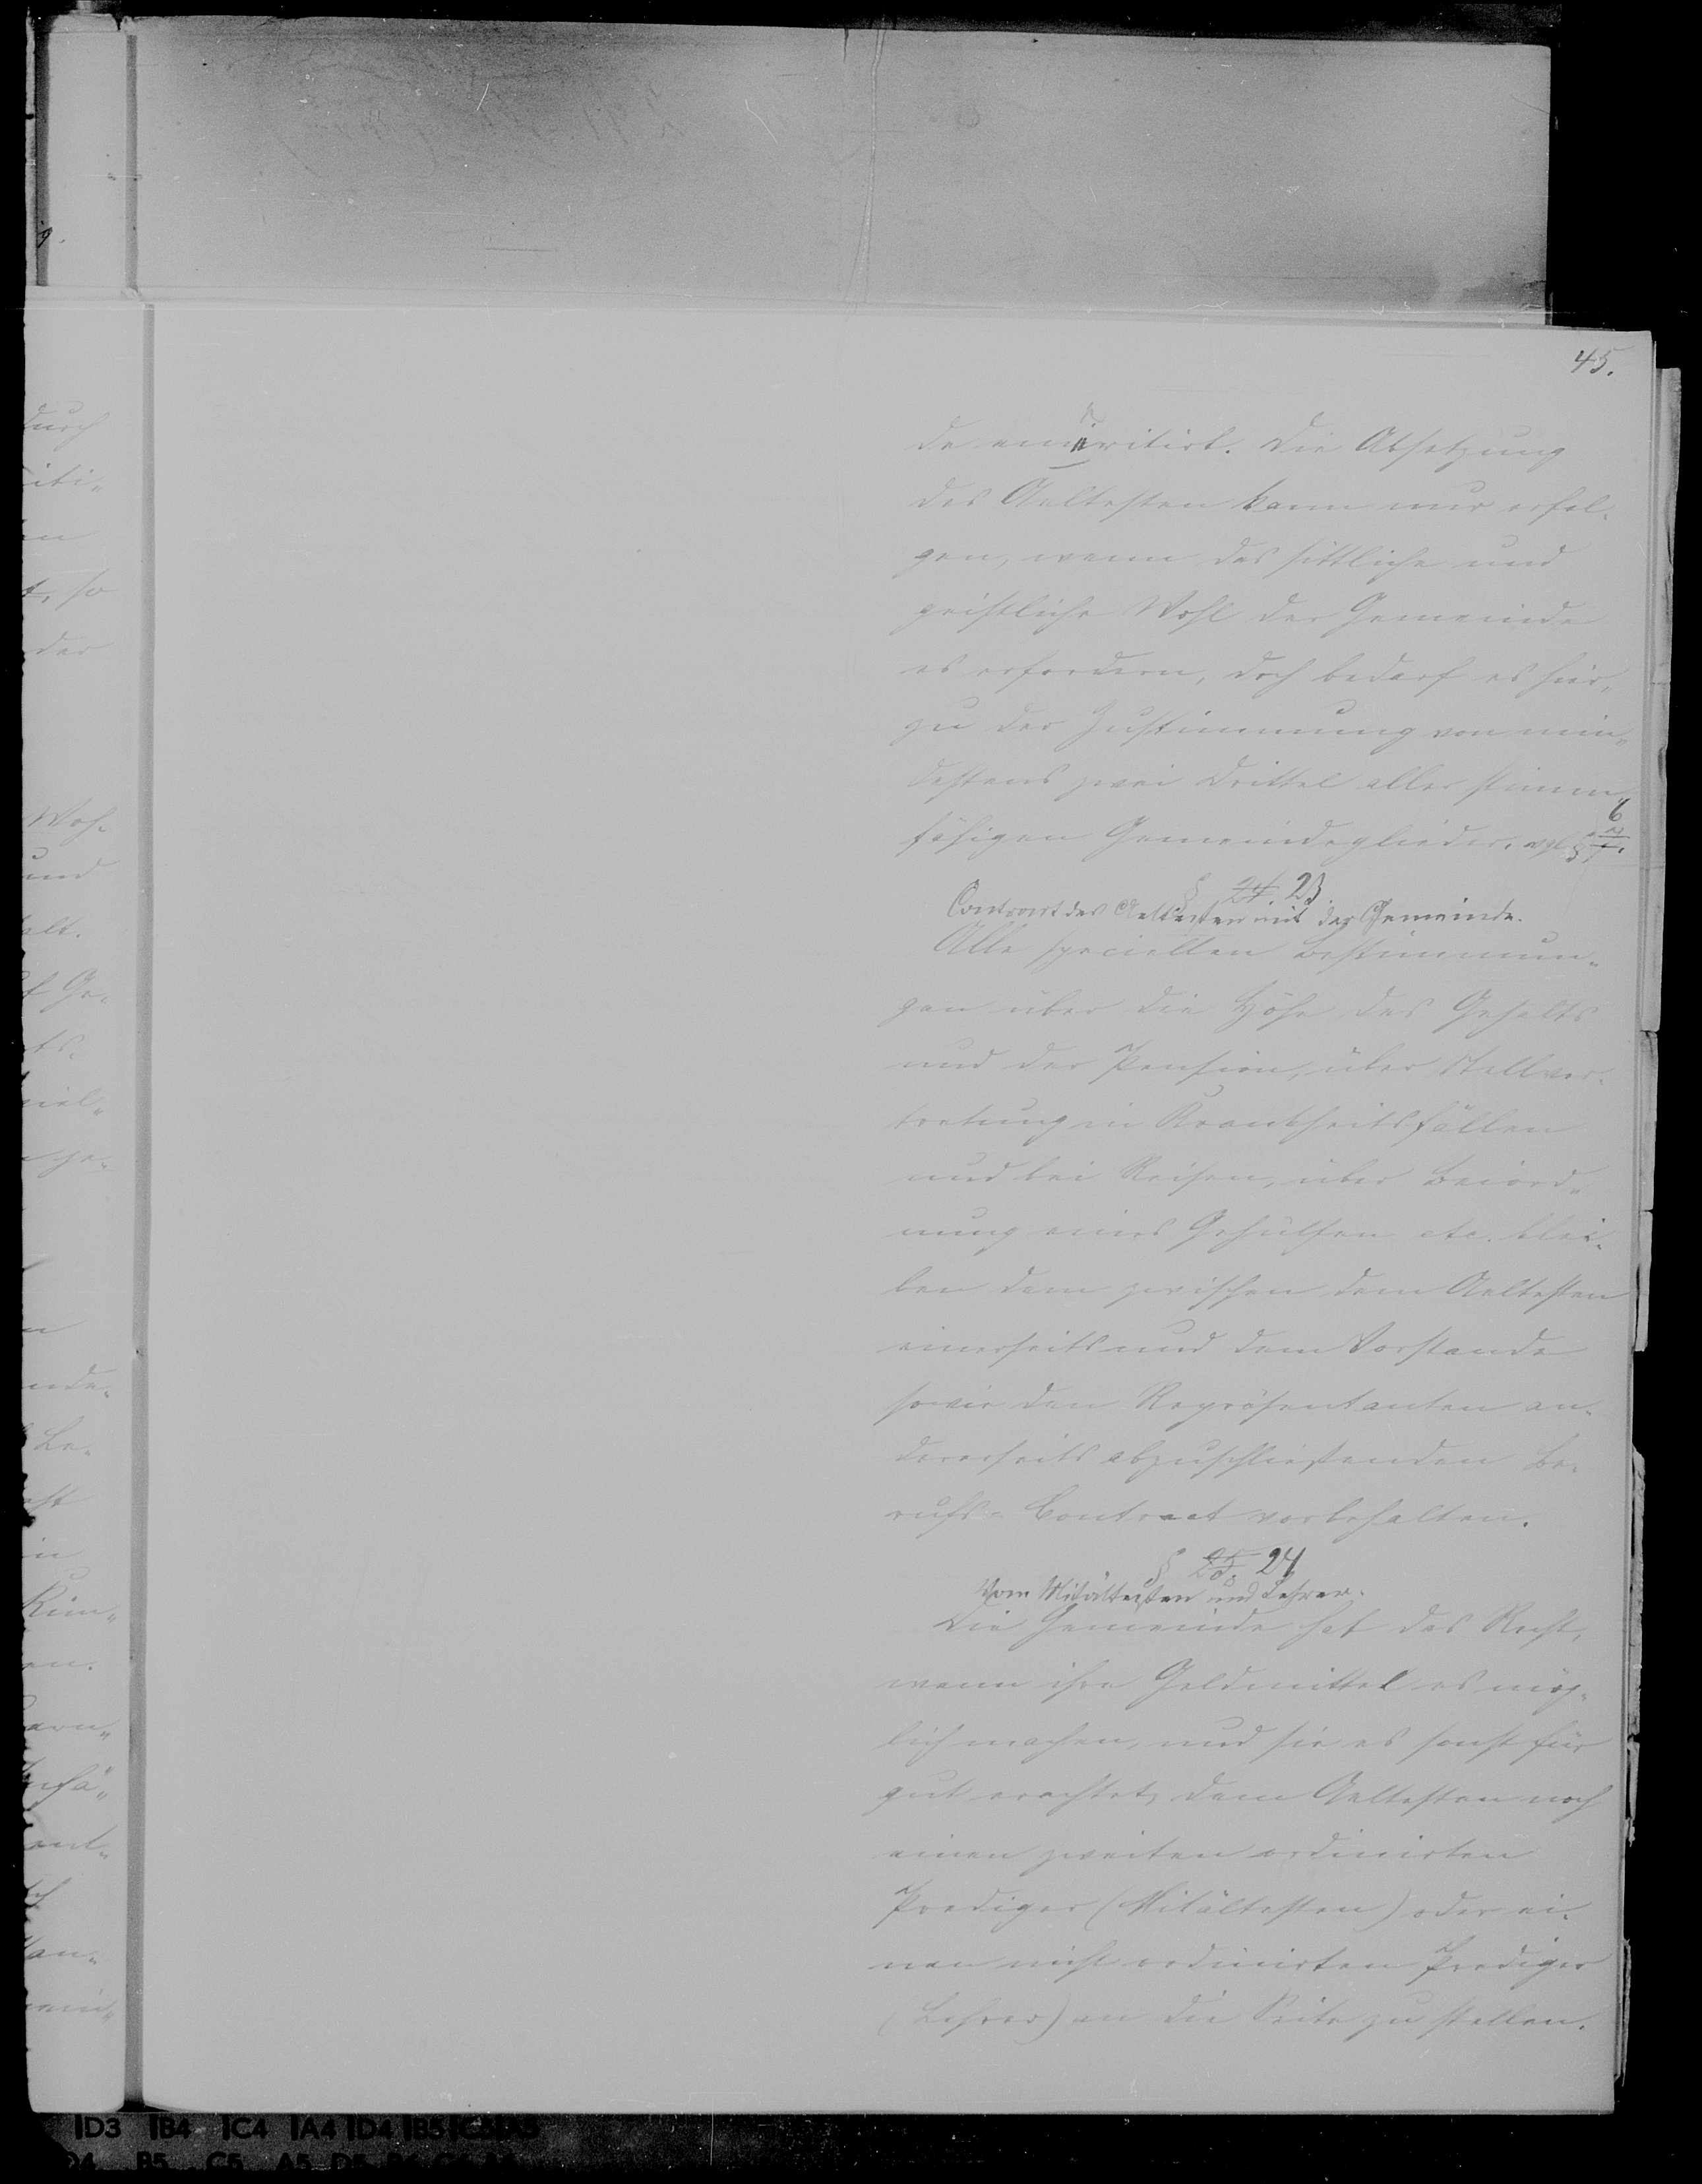 45.
de emeritirt. Die Absetzung
des Aeltesten kann nur erfol-
gen, wenn das sittliche und
geistliche Wohl der Gemeinde
es erfordern, doch bedarf es hier„
zu der Zustimmung von min„
destens zwei Drittel aller stimm„
fähigen Gemeindeglieder. vgl §. 6
§ 24. 23.
Contract des Aeltesten mit der Gemeinde.
Alle speciellen Bestimmun„
gen über die Höhe des Gehalts
und der Pension, über Stellver-
tretung in Krankheitsfällen
und bei Reisen, über Beiord„
nung eines Gehülfen etc. blei-
ben dem zwischen dem Aeltesten
einerseits und dem Vorstande
sowie den Repräsentanten an-
dererseits abzuschließenden Be-
rufs-Contract vorbehalten.
§ 25. 24
Vom Mitältesten und Lehrer.
Die Gemeinde hat das Recht,
wenn ihre Geldmittel es mög-
lich machen, und sie es sonst für
gut erachtet, dem Aeltesten noch
einen zweiten ordinirten
Prediger (Mitältesten) oder ei-
nen nicht ordinirten Prediger
(Lehrer) an die Seite zu stellen.
durch
iti„
en
t, so
der
Woh-
und
alt.
f Ge-
ts-
iel„
ge-
n
nde-
Be-
in
Kim„
en.
ern„
nfä„
ent-
an-
ein„
D3 B4 C4 A4 D4 B5 C5 A5
D4 B5 C5 A5 D5